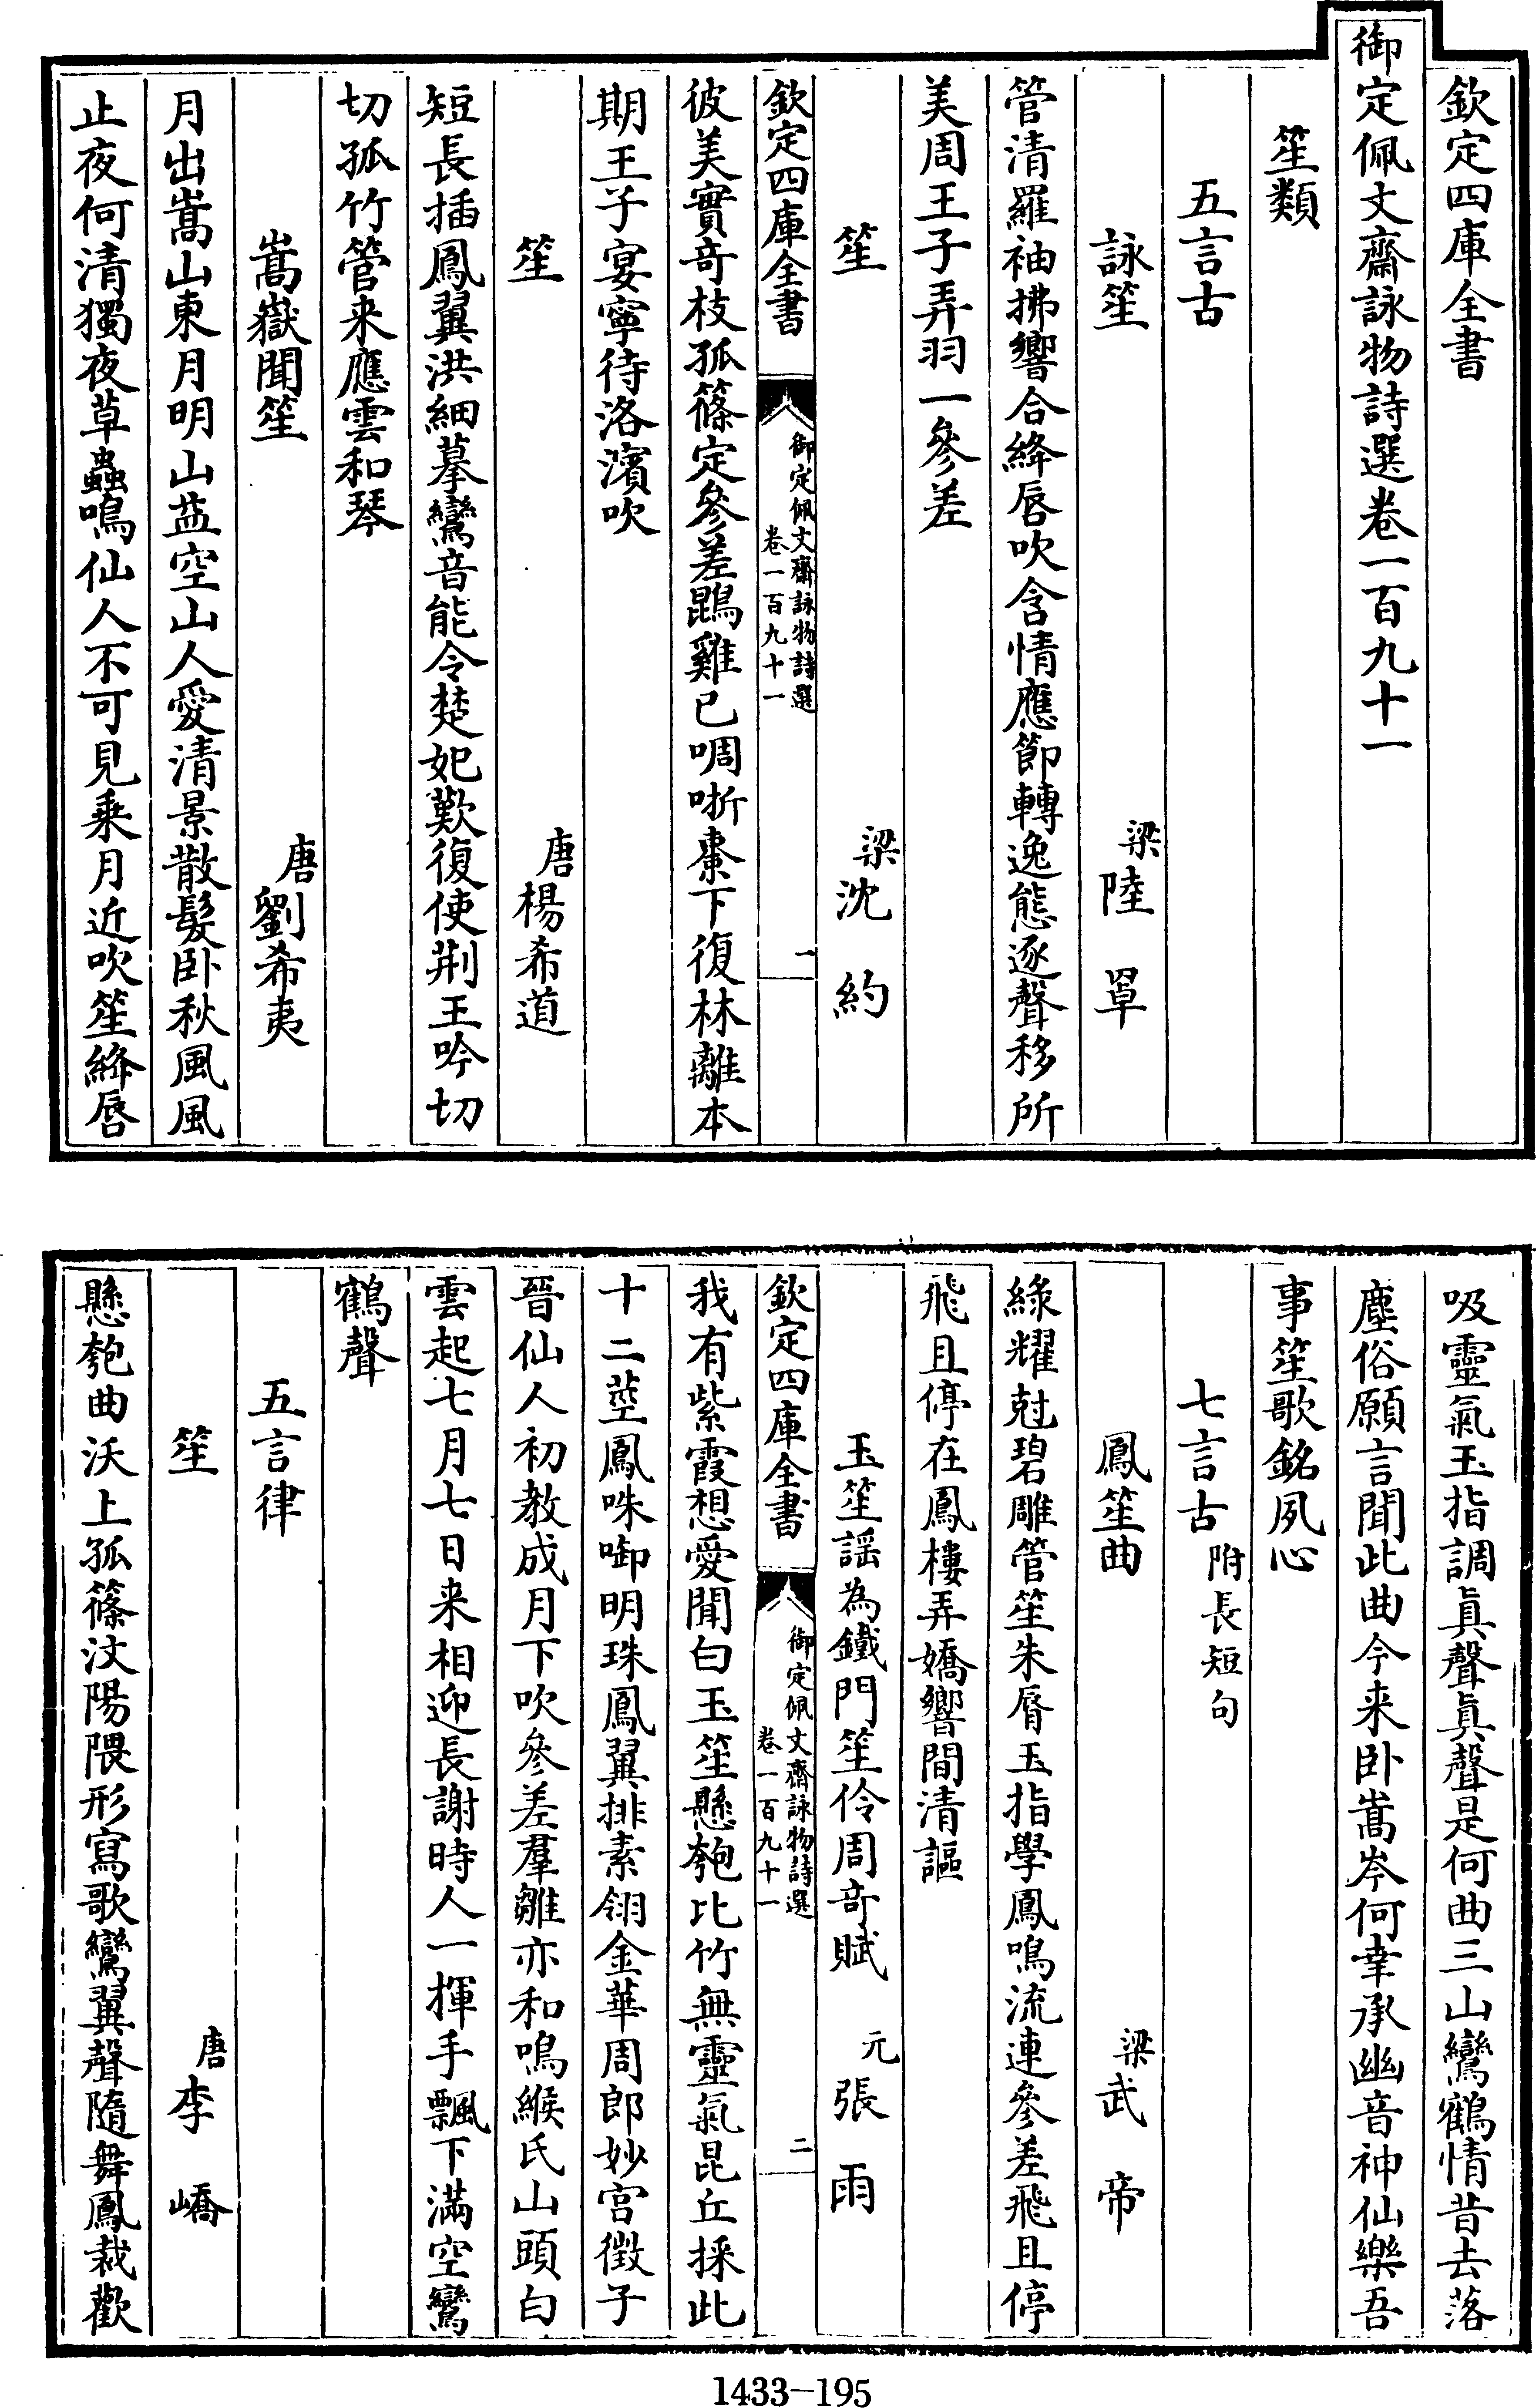 欽定四庫全書
御定佩文齋詠物詩選卷一百九十一
笙類
五言古
詠笙　梁陸　罩
管清羅袖拂響合絳唇吹含情應節轉逸態逐聲移所
美周王子弄羽一參差
笙　梁沈　約
欽定四庫全書
御定佩文齋詠物詩選
卷一百九十一
一
彼美實奇枝孤篠定參差鵾雞已啁哳棗下復林離本
期王子宴寧待洛濱吹
笙　唐楊希道
短長插鳳翼洪細摹鸞音能令楚妃歎復使荆王吟切
切孤竹管来應雲和琴
嵩嶽聞笙　唐劉希夷
月出嵩山東月明山益空山人愛清景散髮卧秋風風
止夜何清獨夜草蟲鳴仙人不可見乗月近吹笙絳唇
吸靈氣玉指調真聲真聲是何曲三山鸞鶴情昔去落
塵俗願言聞此曲今来卧嵩岑何幸承幽音神仙樂吾
事笙歌銘夙心
七言古附長短句
鳳笙曲　梁武　帝
綠耀尅碧雕管笙朱脣玉指學鳳鳴流連參差飛且停
飛且停在鳳樓弄嬌響間清謳
玉笙謡為鐵門笙伶周奇賦　元張　雨
欽定四庫全書
御定佩文齋詠物詩選
卷一百九十一
二
我有紫霞想愛聞白玉笙懸匏比竹無靈氣昆丘採此
十二莖鳳咮啣明珠鳳翼排素翎金華周郎妙宫徴子
晉仙人初教成月下吹參差羣雛亦和鳴緱氏山頭白
雲起七月七日来相迎長謝時人一揮手飄下滿空鸞
鶴聲
五言律
笙　唐李　嶠
懸匏曲沃上孤篠汶陽隈形寫歌鸞翼聲隨舞鳳裁歡
1433-195